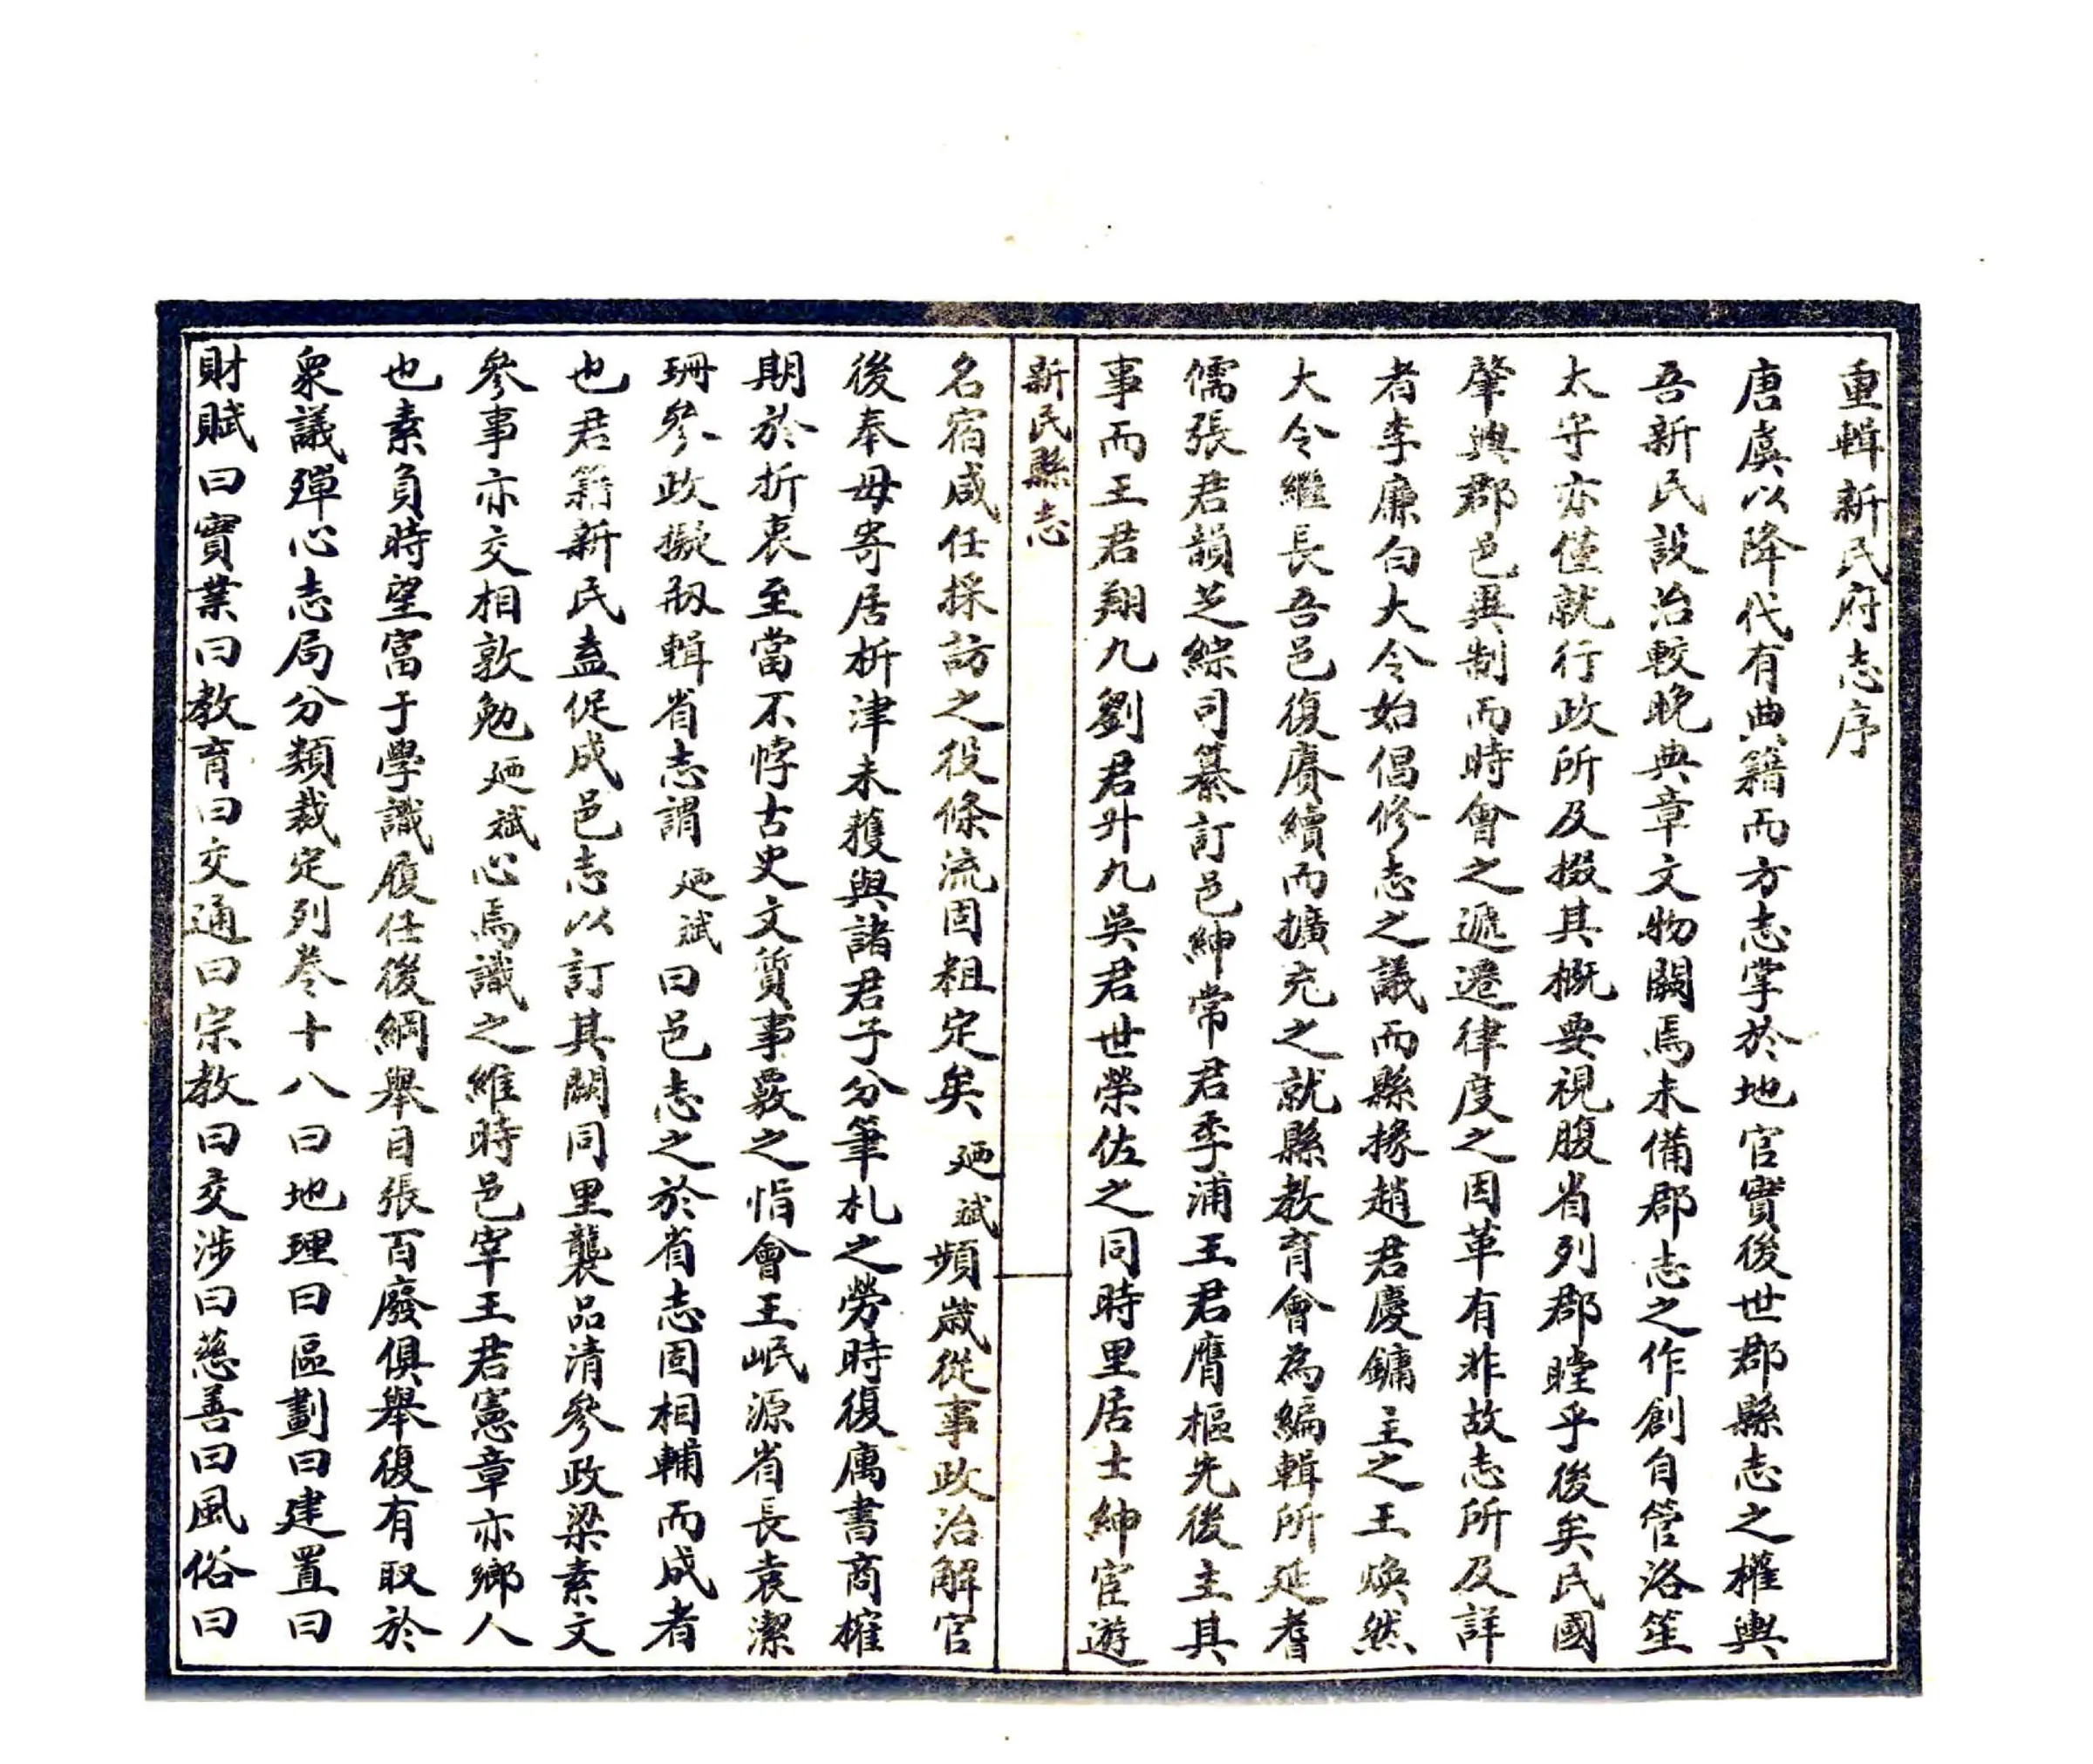 重輯新民府志序
唐虞以降代有典籍而方志掌於地官實後世郡縣志之權輿
吾新民設治較晚典章文物闕焉未備郡志之作創自管洛笙
太守亦僅就行政所及掇其概要視腹省列郡瞠乎後矣民國
肇興郡邑異制而時會之遞遷律度之因革有非故志所及詳
者李廉白大令始倡修志之議而縣掾趙君慶鏞主之王煥然
大令繼長吾邑復賡續而擴充之就縣教育會為編輯所延耆
儒張君韻芝綜司纂訂邑紳常君季浦王君膺樞先後主其
事而王君翔九劉君升九吳君世榮佐之同時里居士紳宦遊
新民縣志
名宿咸任採訪之役條流固粗定矣廼斌頻歲從事政治解官
後奉母寄居析津未獲與諸君子分筆札之勞時復属書商榷
期於折衷至當不悖古史文質事覈之恉會王岷源省長袁潔
珊參政擬剏輯省志謂廼斌曰邑志之於省志固相輔而成者
也君籍新民盍促成邑志以訂其闕同里襲品清參政梁素文
參事亦交相敦勉廼斌心焉識之維時邑宰王君憲章亦鄉人
也素負時望富于學識履任後綱舉目張百廢俱舉復有取於
衆議殫心志局分類裁定列卷十八曰地理曰區劃曰建置曰
財賦曰實業曰教育曰交通曰宗教曰交涉曰慈善曰風俗曰